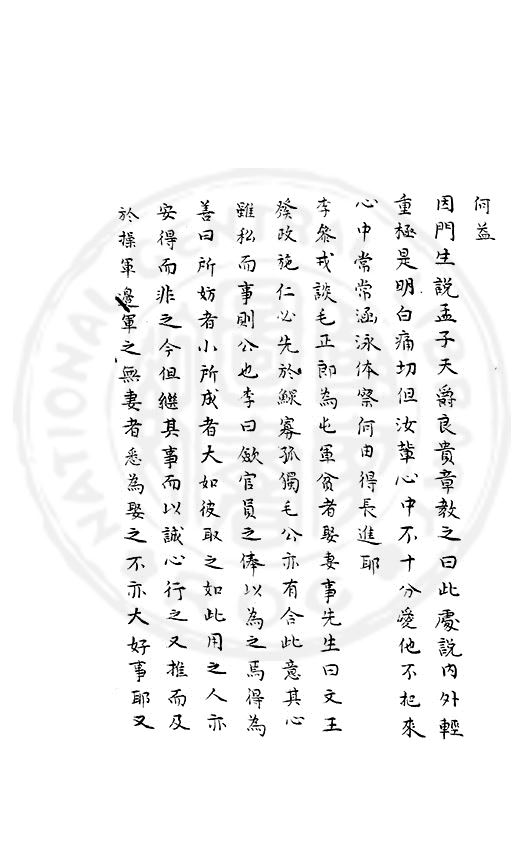 何益
因門生說孟子天爵良貴章教之曰此處說內外輕
重極是明白痛切但汝輩心中不十分愛他不把來
心中常常涵泳体察何由得長進耶
李叅戎談毛正郎為屯軍貧者娶妻事先生曰文王
發政施仁必先於鰥寡孤獨毛公亦有合此意其心
雖私而事則公也李曰歛官員之俸以為之焉得為
善曰所妨者小所成者大如彼取之如此用之人亦
安得而非之今但繼其事而以誠心行之又推而及
於操軍邊軍之無妻者悉為娶之不亦大好事耶又
NATIONAL CENTRAL LIBRARY